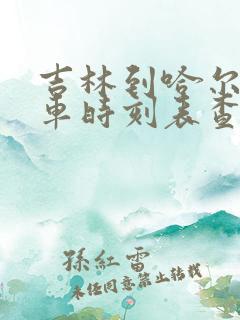 吉林到哈尔
车时刻表查
孫紅雷
未经同意禁止转载